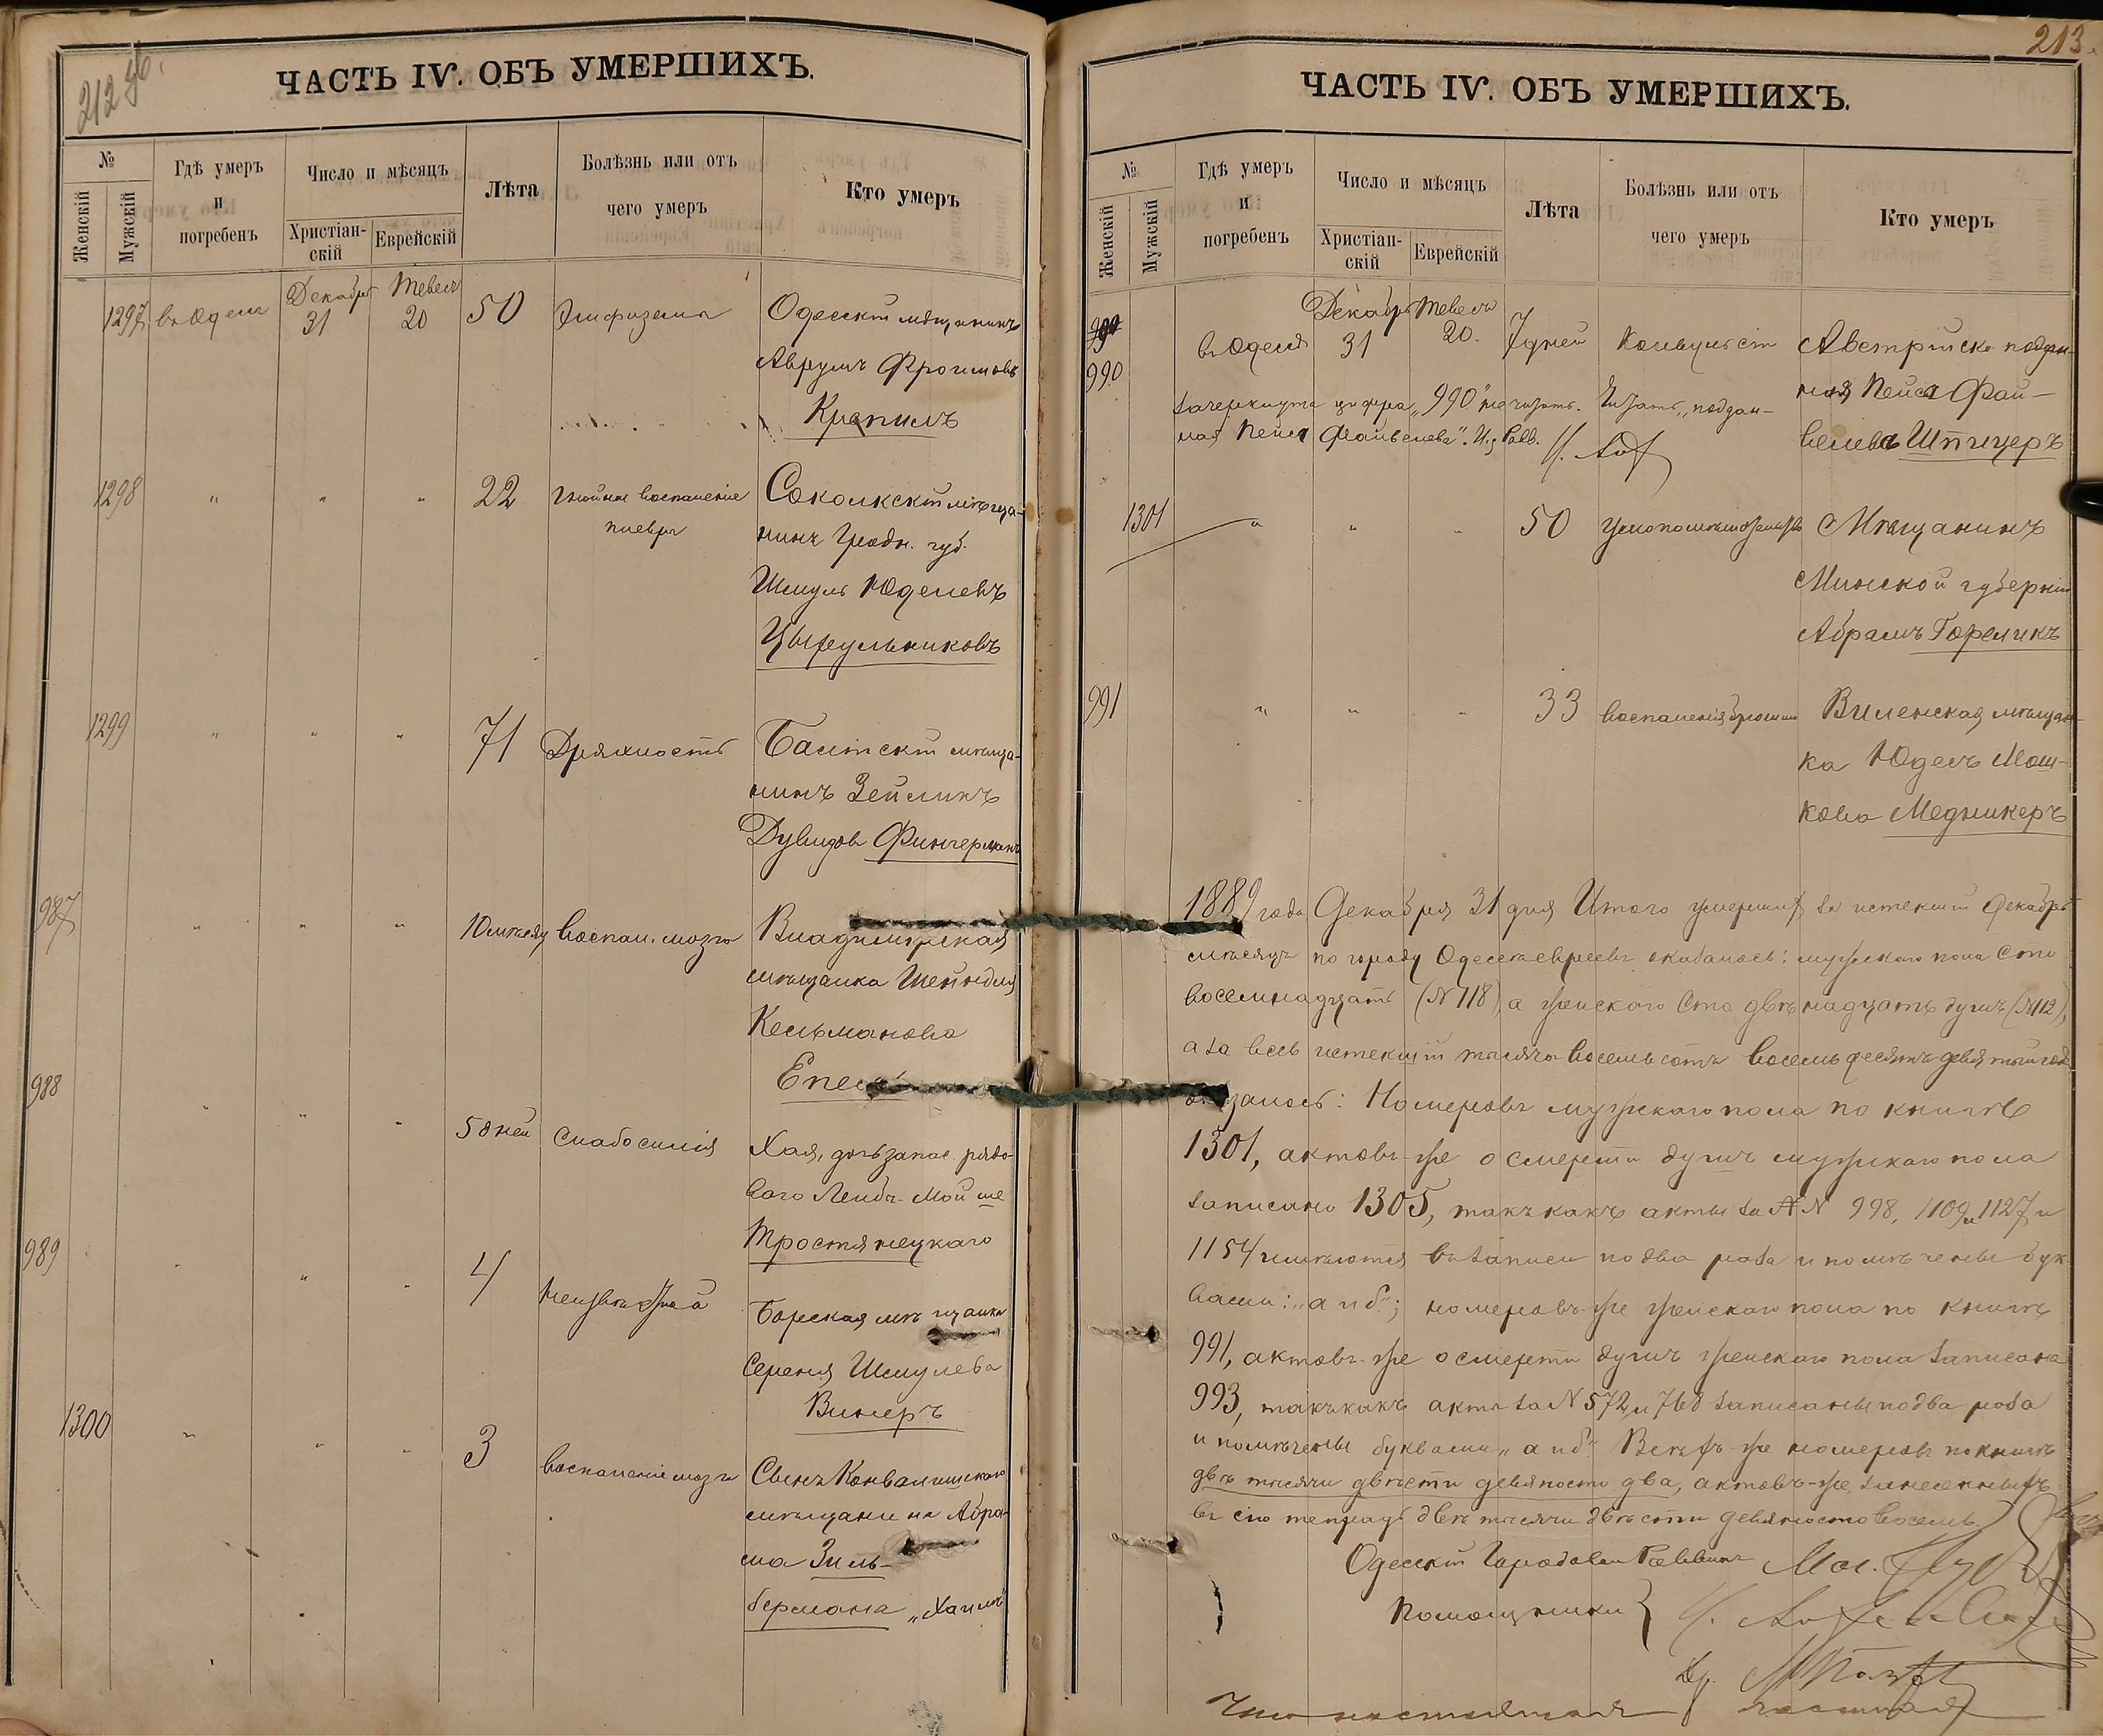 212 об.
ЧАСТЬ IV. ОБЪ УМЕРШИХЪ.
№
Женскій
Мужскій
Гдѣ умеръ
и
погребенъ
Число и мѣсяцъ
Христіан-
скій
Еврейскій
Лѣта
Болѣзнь или отъ
чего умеръ
Кто умеръ
Декабрь Тевесъ
1297 въ Одессѣ 31 20 50 Эмфизема Одесскій мѣщанинъ
Аврумъ Фроимовъ
Крапивъ
1298 " " " 22 Гнойное воспаленіе Соколкскій мѣща-
плевры нинъ Гродн. губ.
Шмуль Юделевъ
Цырульниковъ
1299 " " " 71 Дряхлость Балтскій мѣща-
нинъ Зейликъ
Дувидовъ Фингерманъ
987 " " " 10 мѣсяц воспал. мозга Владимірская
мѣщанка Шейндля
Кельманова
988
" " " 5 дней Слабосилія Хая, дочь запас. рядо-
вого Лейбы-Мойше
Тростянецкаго
989
" " " 4 неизвѣстной Борская мѣщанка
Сереня Шмулева
Винеръ
1300 " " " 3 воспаленіе мозга Сынъ Конвалишскаго
мѣщанина Абра-
ма Зиль-
бермана „Хаимъ"
213.
ЧАСТЬ IV. ОБЪ УМЕРШИХЪ.
№
Женскій
Мужскій
Гдѣ умеръ
и
погребенъ
Число и мѣсяцъ
Христіан-
скій
Еврейскій
Лѣта
Болѣзнь или отъ
чего умеръ
Кто умеръ
Декабрь Тевесъ
990 въ Одессѣ 31 20. 7 дней Конвульсій Австрійско поддан-
990 ная Пейса Фай-
зачеркнута цифра „990" не читать. Читать „поддан-
ная Пейса Файвелева". И. д. Равв. велева Шпицеръ
1301 " " " 50 Умопомѣшательства Мѣщанинъ
Минской губерніи
Абрамъ Гореликъ
991 " " " 33 воспаленія брюшины Виленская мѣщан-
ка Юдесъ Мош-
кова Медникеръ
1889 года Декабря 31 дня Итого умершихъ за истекшій Декабрь
мѣсяцъ по городу Одессѣ евреевъ оказалось: мужскаго пола сто
восемнадцать (№ 118), а женскаго сто двѣнадцать душъ (№ 112),
а за весь истекшій тысяча восемьсотъ восемьдесятъ девятый годъ
оказалось: Номеровъ мужскаго пола по книгѣ
1301, актовъ-же о смерти душъ мужскаго пола
записано 1305, такъ какъ акты за №№ 998, 1109 и 1127 и
1154 имѣются въ записи по два раза и помѣчены бук-
вами: „а и б"; номеровъ-же женскаго пола по книгѣ
991, актовъ-же о смерти душъ женскаго пола записано
993, такъ какъ акты за № 572 и 768 записаны по два раза
и помѣчены буквами „а и б" Всѣхъ-же номеровъ по книгѣ
двѣ тысячи двѣсти девяносто два, актовъ-же, занесенныхъ
въ сію тетрадь двѣ тысячи двѣсти девяносто восемь.
Одесскій Городовой Раввинъ
Помощники
Что настоящая